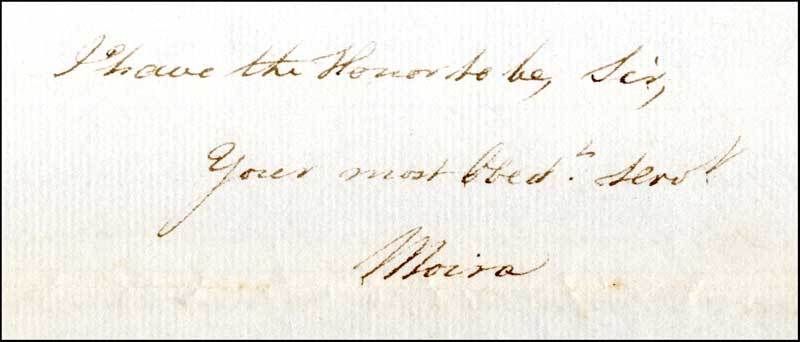 I have the Honor to be, Sir,
Your most Obed.t Serv.t
Moira